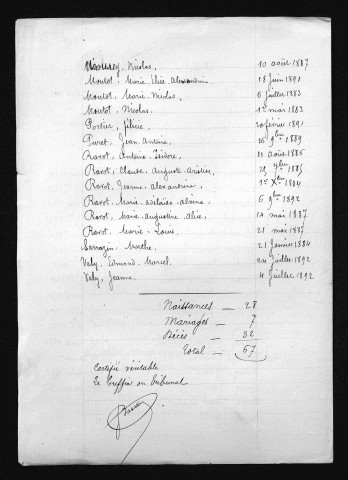 Mourey, Nicolas. 10 août 1887
Moutot, Marie Elise Alexandrine. 18 juin 1891
Moutot, Marie Nicolas. 6 juillet 1883
Moutot, Nicolas. 1er mai 1883
Portier, Félicie. 20 février 1891
Puret, Jean Antoine. 16 9bre 1889
Ravot, Antoine Isidore. 11 août 1885
Ravot, Claude Auguste 29 9bre 1885
Ravot, Jeanne Alexandrine. 1er Xbre 1884
Ravot, Marie Adelaïde Albina. 6 9bre 1892
Ravot, Marie Augustine Alice. 14 mai 1887
Ravot, Marie Louis. 21 mai 1887
Sarrazin, Marthe. 21 Janvier 1884
Valy, Edmond Marcel. 24 Juillet 1892
Valy, Jeanne. 4 Juillet 1892
Naissances — 28
Mariages — 7
Décès — 32
Total — 67
Certifié véritable
Le Greffier du Tribunal